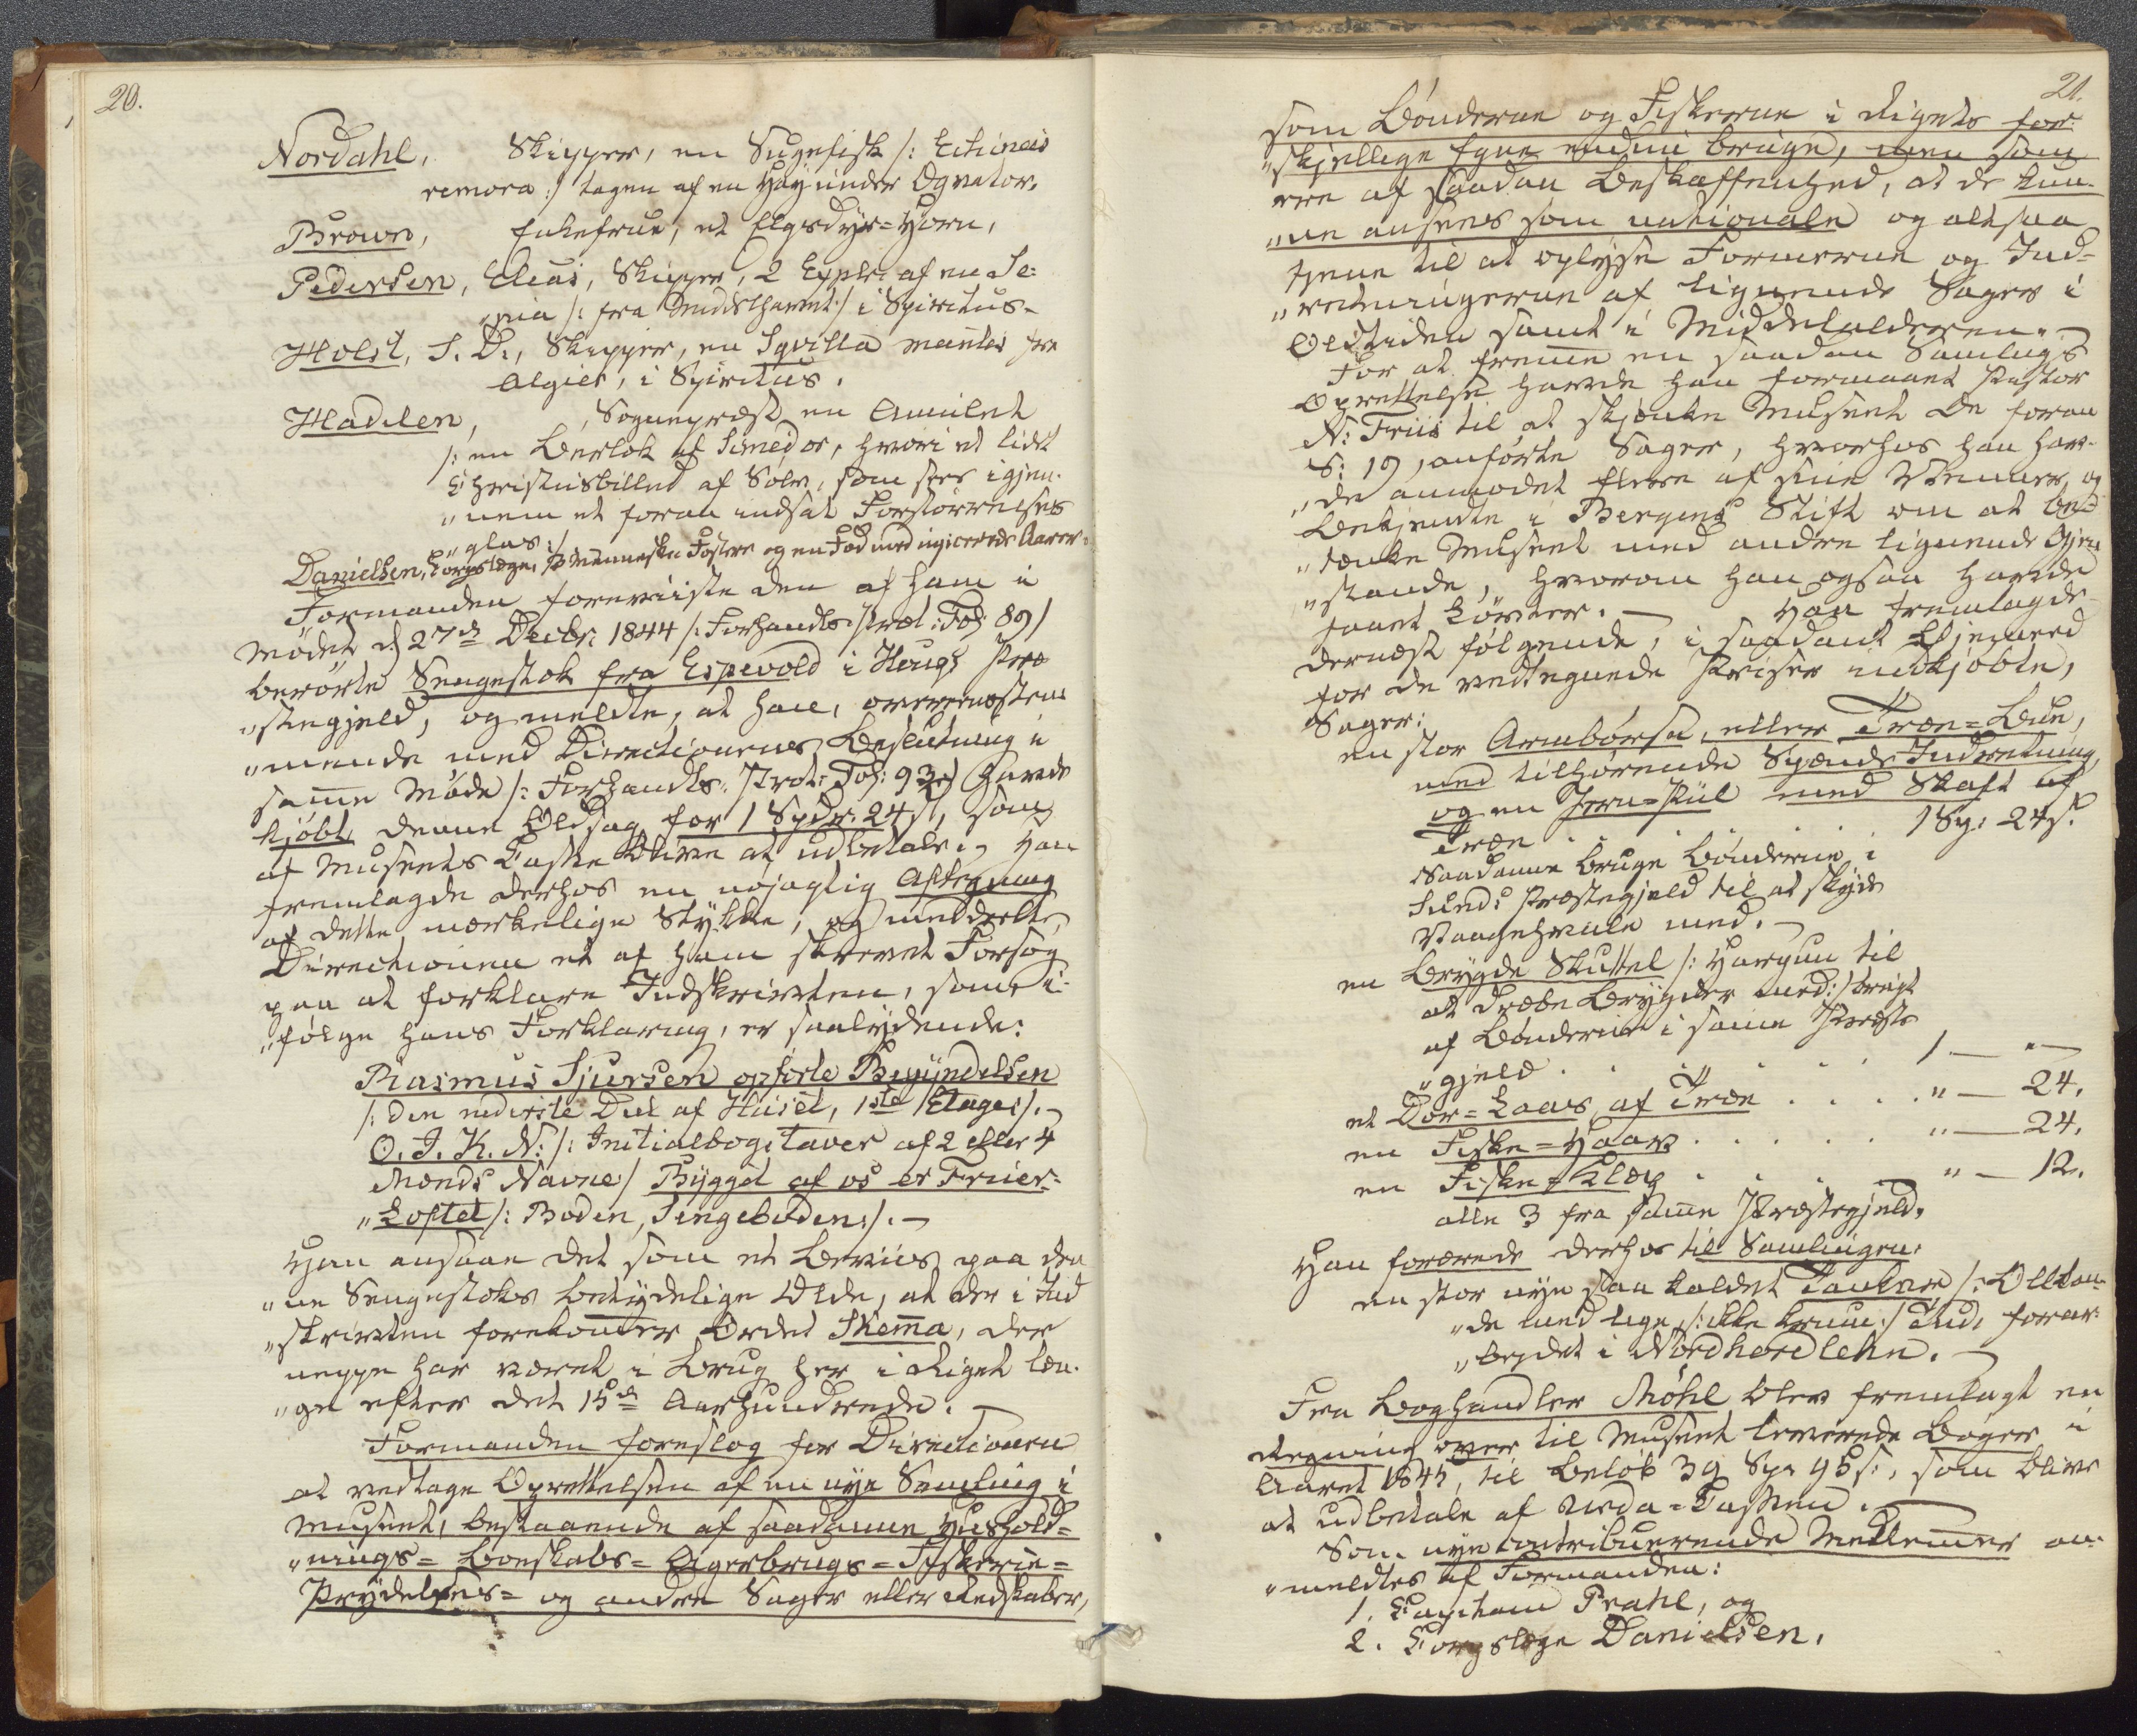 20.
Nordahl, Skipper, en Sugefisk /: Echineis
remora :/ tagen af en Hay under Eqvator.
Brown, Enkefrue, et Elgsdyr=Horn,
Pedersen, Elias, Skipper, 2 Expl: af en Se=
„pia /: fra Middelhavet :/ i Spiritus.
Holst, S. D., Skipper, en Sqvilla mantis fra
Algier, i Spiritus.
Hadeln, , Sognepræst, en Amulet
/: en Berlok af Similor, hvori et lidet
Christusbilled af Sølv, som sees igjen-
„nem et foran indsat Forstørrelses
„glas :/
Danielsen, Corpslæge, 3 Menneske Fostere og en Fod med injicerede Aarer.
Formanden foreviiste den af ham i
Mødet d. 27de Decbr: 1844 /: Forhandls. Prot: Fol: 89/
berørte Sengestok fra Espevold i Hougs Præ
„stegjeld, og meldte, at have, overeenstem
„mende med Directionens Beslutning i
samme Møde /: Forhandls. Prot: Fol: 93 :/ havde
kjøbt denne Oldsag for 1 Spdr. 24 s, som
af Museets Casse bliver at udbetale. Han
fremlagde derhos en nøjagtig Aftegning
af dette mærkelige Stykke, og meddeelte
Directionen et af ham skrevet Forsøg
paa at forklare Indskrivten, som i-
„følge hans Forklaring, er saalydende:
Rasmus Sjursen opførte Begyndelsen
/: den nederste Deel af Huset, 1ste Etage :/. –
O. J. K. N: /: Initialbogstaver af 2 eller 4
Mænds Navne / Bygget af os er Frier=
„Loftet /: Boden, Sengeboden :/. –
Han ansaae det som et Beviis paa den
„ne Sengestoks betydelige Ælde, at der i Ind
„skrivten forekommer Ordet Skemma, der
neppe har været i Brug her i Riget læn-
„ge efter det 15de Aarhundrede. –
Formanden foreslog for Directionen
at vedtage Oprettelsen af en nye Samling i
Museet, bestaaende af saadanne Huushold=
„nings= Boeskabs= Agerbrugs= Fiskerie=
Prydelses= og andre Sager eller Redskaber,
21.
som Bønderne og Fiskerne i Rigets for-
„skjellige Egne endnu bruge, men som
ere af saadan Beskaffenhed, at de kun-
„ne ansees som nationale og altsaa
tjene til at oplyse Formerne og Ind=
„retningerne af lignende Sager i
Oldtiden samt i Middelalderen. –
For at fremme en saadan Samlings
Oprettelse havde han formaaet Pastor
N: Friis til at skjænke Museet de foran
S: 19, anførte Sager, hvorhos han hav-
„de anmodet flere af sine Venner og
Bekjendte i Bergens Stift om at be-
„tænke Museet med andre lignende Gjen
„stande, hvorom han ogsaa havde
faaet Løvter. – Han fremlagde
dernæst følgende, i saadant Øjemed
for de vedtegnede Priser indkjøbte,
Sager:
en stor Armbørst, eller Træe=Bue,
med tilhørende Spænde Indretning,
og en Jern=Piil med Skaft af
Træe . . . . . . 1 Sp: 24 s.
Saadanne bruge Bønderne i
Sunds Præstegjeld til at skyde
Vaagehvale med. –
en Brygde Skuttel /: Harpun til
at dræbe Brygder med :/ brugt
af Bønderne i samme Præste
„gjeld . . . . . . 1 — „ —
et Dør=Laas af Træe . . . . „ — 24.
en Fiske=Haav . . . . . „ — 24.
en Fiske=Klæp . . . . „ — 12.
alle 3 fra samme Præstegjeld.
Han forærede derhos til Samlingen
en stor nye saa kaldet /: Ølkan-
„de med lige /: ikke krum :/ Tud, forar-
„bejdet i Nordhordlehn. –
Fra Boghandler Møhl blev fremlagt en
Regning over til Museet leverede Bøger i
Aaret 1845, til Beløb 39 Spr 95 s., som bliver
at udbetale af Urda=Cassen. –
Som nye contribuerende Medlemmer an-
„meldtes af Formanden:
1. Capitain Prahl, og
2. Corpslæge Danielsen.